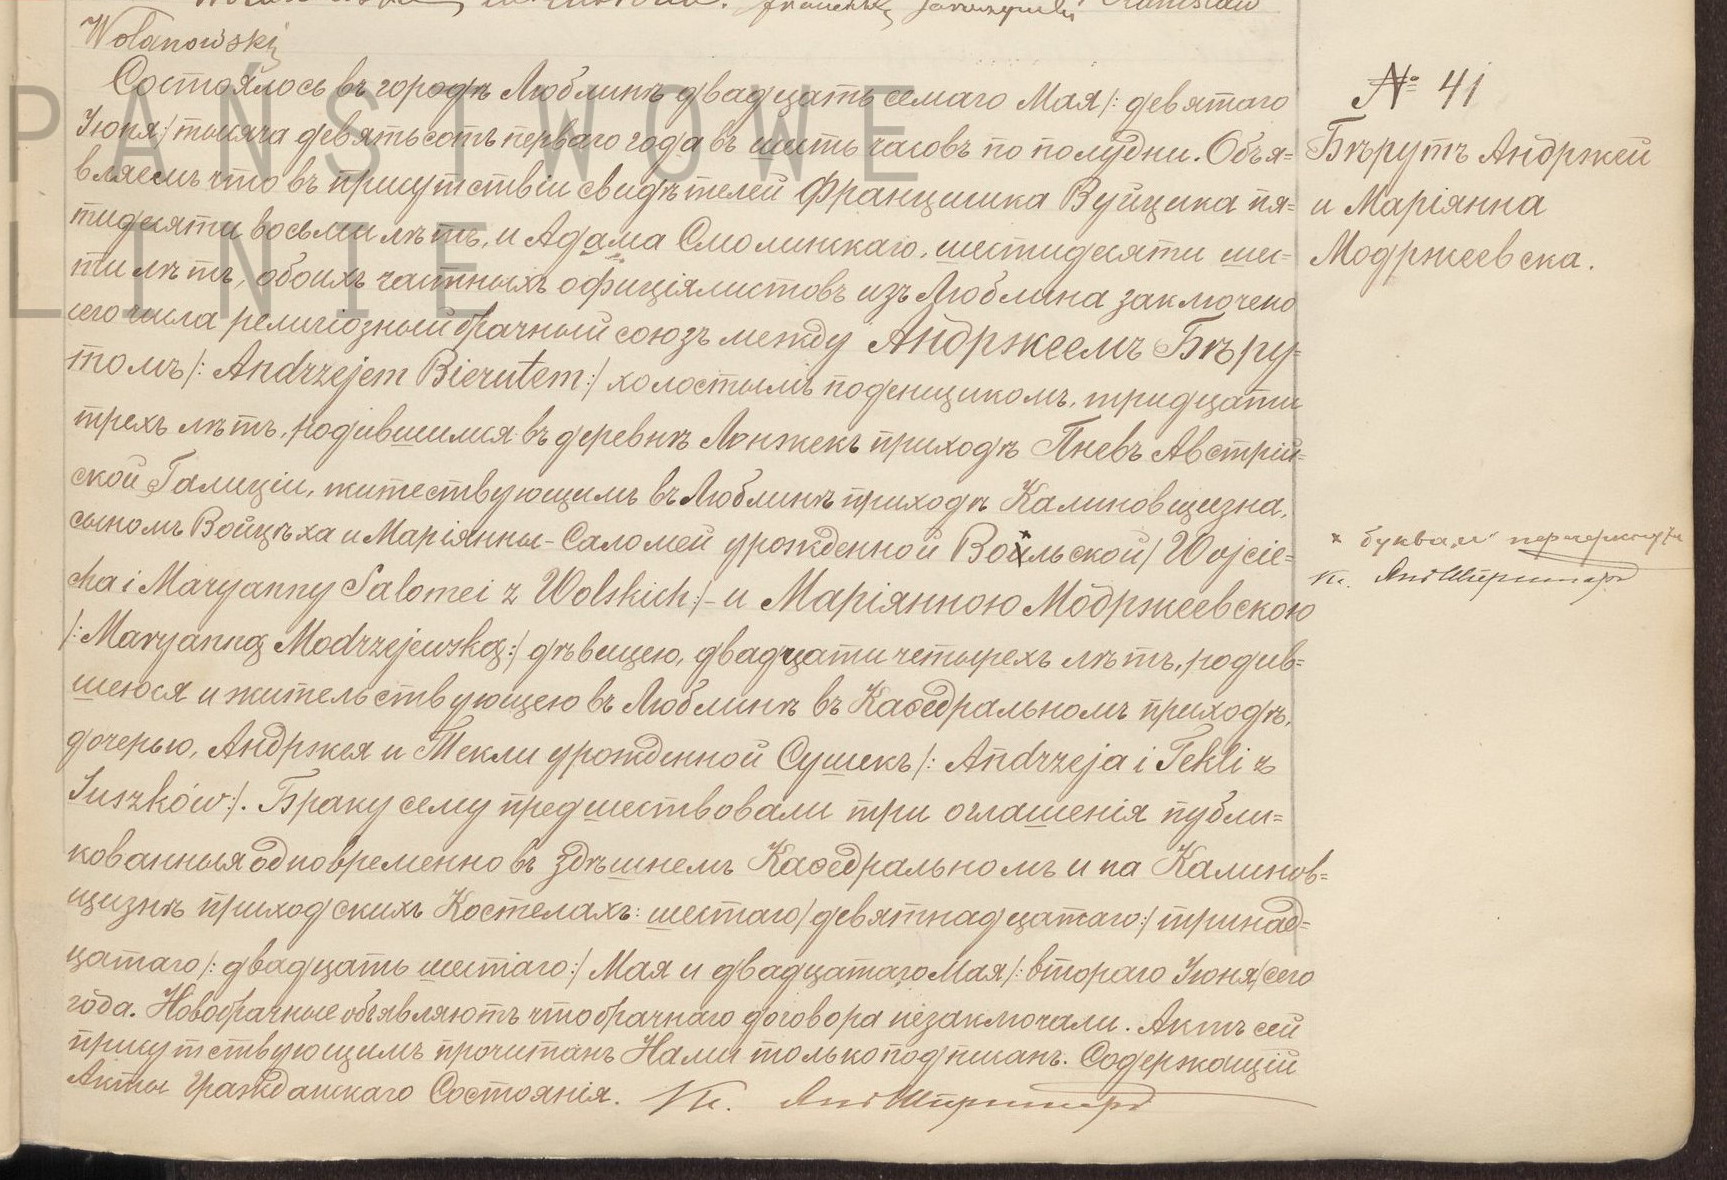 Wolanowski
Состоялось въ городѣ Люблинѣ двадцать седмаго Мая /: девятаго
Іюня :/ тысяча девятьсотъ перваго года въ шесть часовъ по полудни. Объя=
вляемъ что въ присутствіи свидѣтелей Францишка Вуйцика пя=
тидесяти восьми лѣтъ, и Адама Смолинскаго, шестидесяти ше=
сти лѣтъ, обоихъ частныхъ официялистовъ изъ Люблина заключено
сего числа религіозный брачный союзъ между Андржеемъ Бѣру=
томъ /: Andrzejem Bierutem :/ холостымъ поденщикомъ, тридцати
трехъ лѣтъ, родившимся въ деревнѣ Лонжекъ приходѣ Пневъ Австрій=
ской Галиціи, жительствующимъ въ Люблинѣ приходѣ Калиновщизна,
сыномъ Войцѣха и Маріянны-Саломеи урожденной Вольской / Wojcie=
cha i Maryanny Salomei z Wolskich :/ - и Маріянною Модржеевскою
/: Maryanną Modrzejewską :/ дѣвицею, двадцати четырехъ лѣтъ, родив=
шеюся и жительствующею въ Люблинѣ въ Каѳедральномъ приходѣ,
дочерью, Андржея и Текли урожденной Сушекъ /: Andrzeja i Tekli z
Suszków :/. Браку сему предшествовали три оглашенія публи=
кованныя одновременно въ здѣшнемъ Каѳедральномъ и на Калинов=
щизнѣ приходскихъ Костелахъ: шестаго / девятнадцатаго :/ тринад=
цатаго /: двадцать шестаго :/ Мая и двадцатаго Мая /: втораго Іюня / сего
года. Новобрачные объявляютъ что брачнаго договора незаключали. Актъ сей
присутствующимъ прочитанъ Нами только подписанъ. Содержащій
Акты Гражданскаго Состоянія. Кс.
№ 41
Бѣрутъ Андржей
и Маріянна
Модржеевска.
× буква „и“
Кс.
PAŃSTWOWE
LINIE